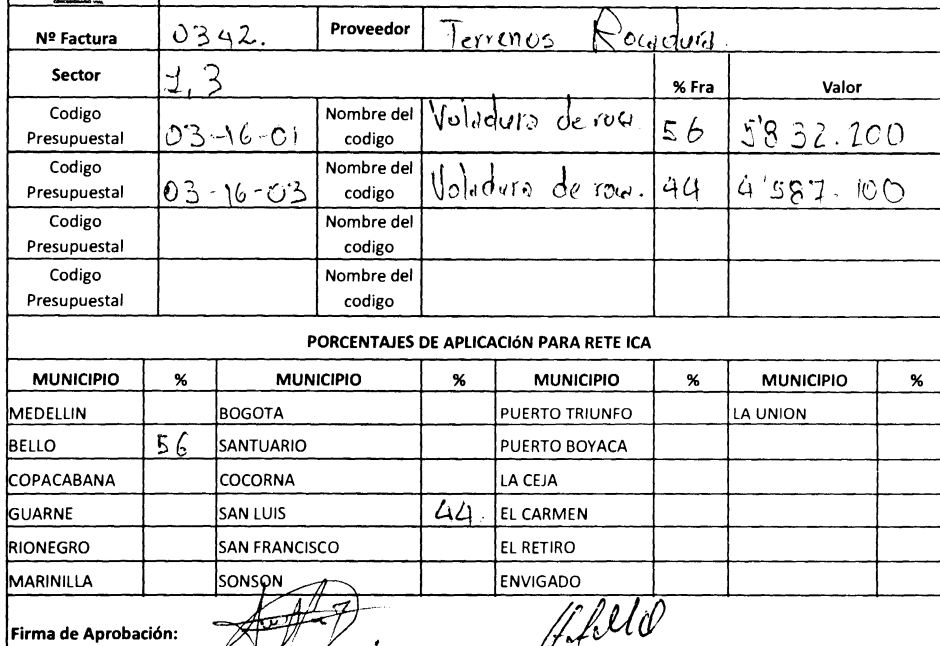 Nº Factura 0342. Proveedor Terrenos Rocadura.
Sector 1,3 % Fra Valor
Codigo Presupuestal 03-16-01 Nombre del codigo Voladura de roca. 56 5'832.200
Codigo Presupuestal 03-16-03 Nombre del codigo Voladura de roca. 44 4'587.100
Codigo Presupuestal Nombre del codigo
Codigo Presupuestal Nombre del codigo
PORCENTAJES DE APLICACIóN PARA RETE ICA
MUNICIPIO % MUNICIPIO % MUNICIPIO % MUNICIPIO %
MEDELLIN BOGOTA PUERTO TRIUNFO LA UNION
BELLO 56 SANTUARIO PUERTO BOYACA
COPACABANA COCORNA LA CEJA
GUARNE SAN LUIS 44. EL CARMEN
RIONEGRO SAN FRANCISCO EL RETIRO
MARINILLA SONSON ENVIGADO
Firma de Aprobación: